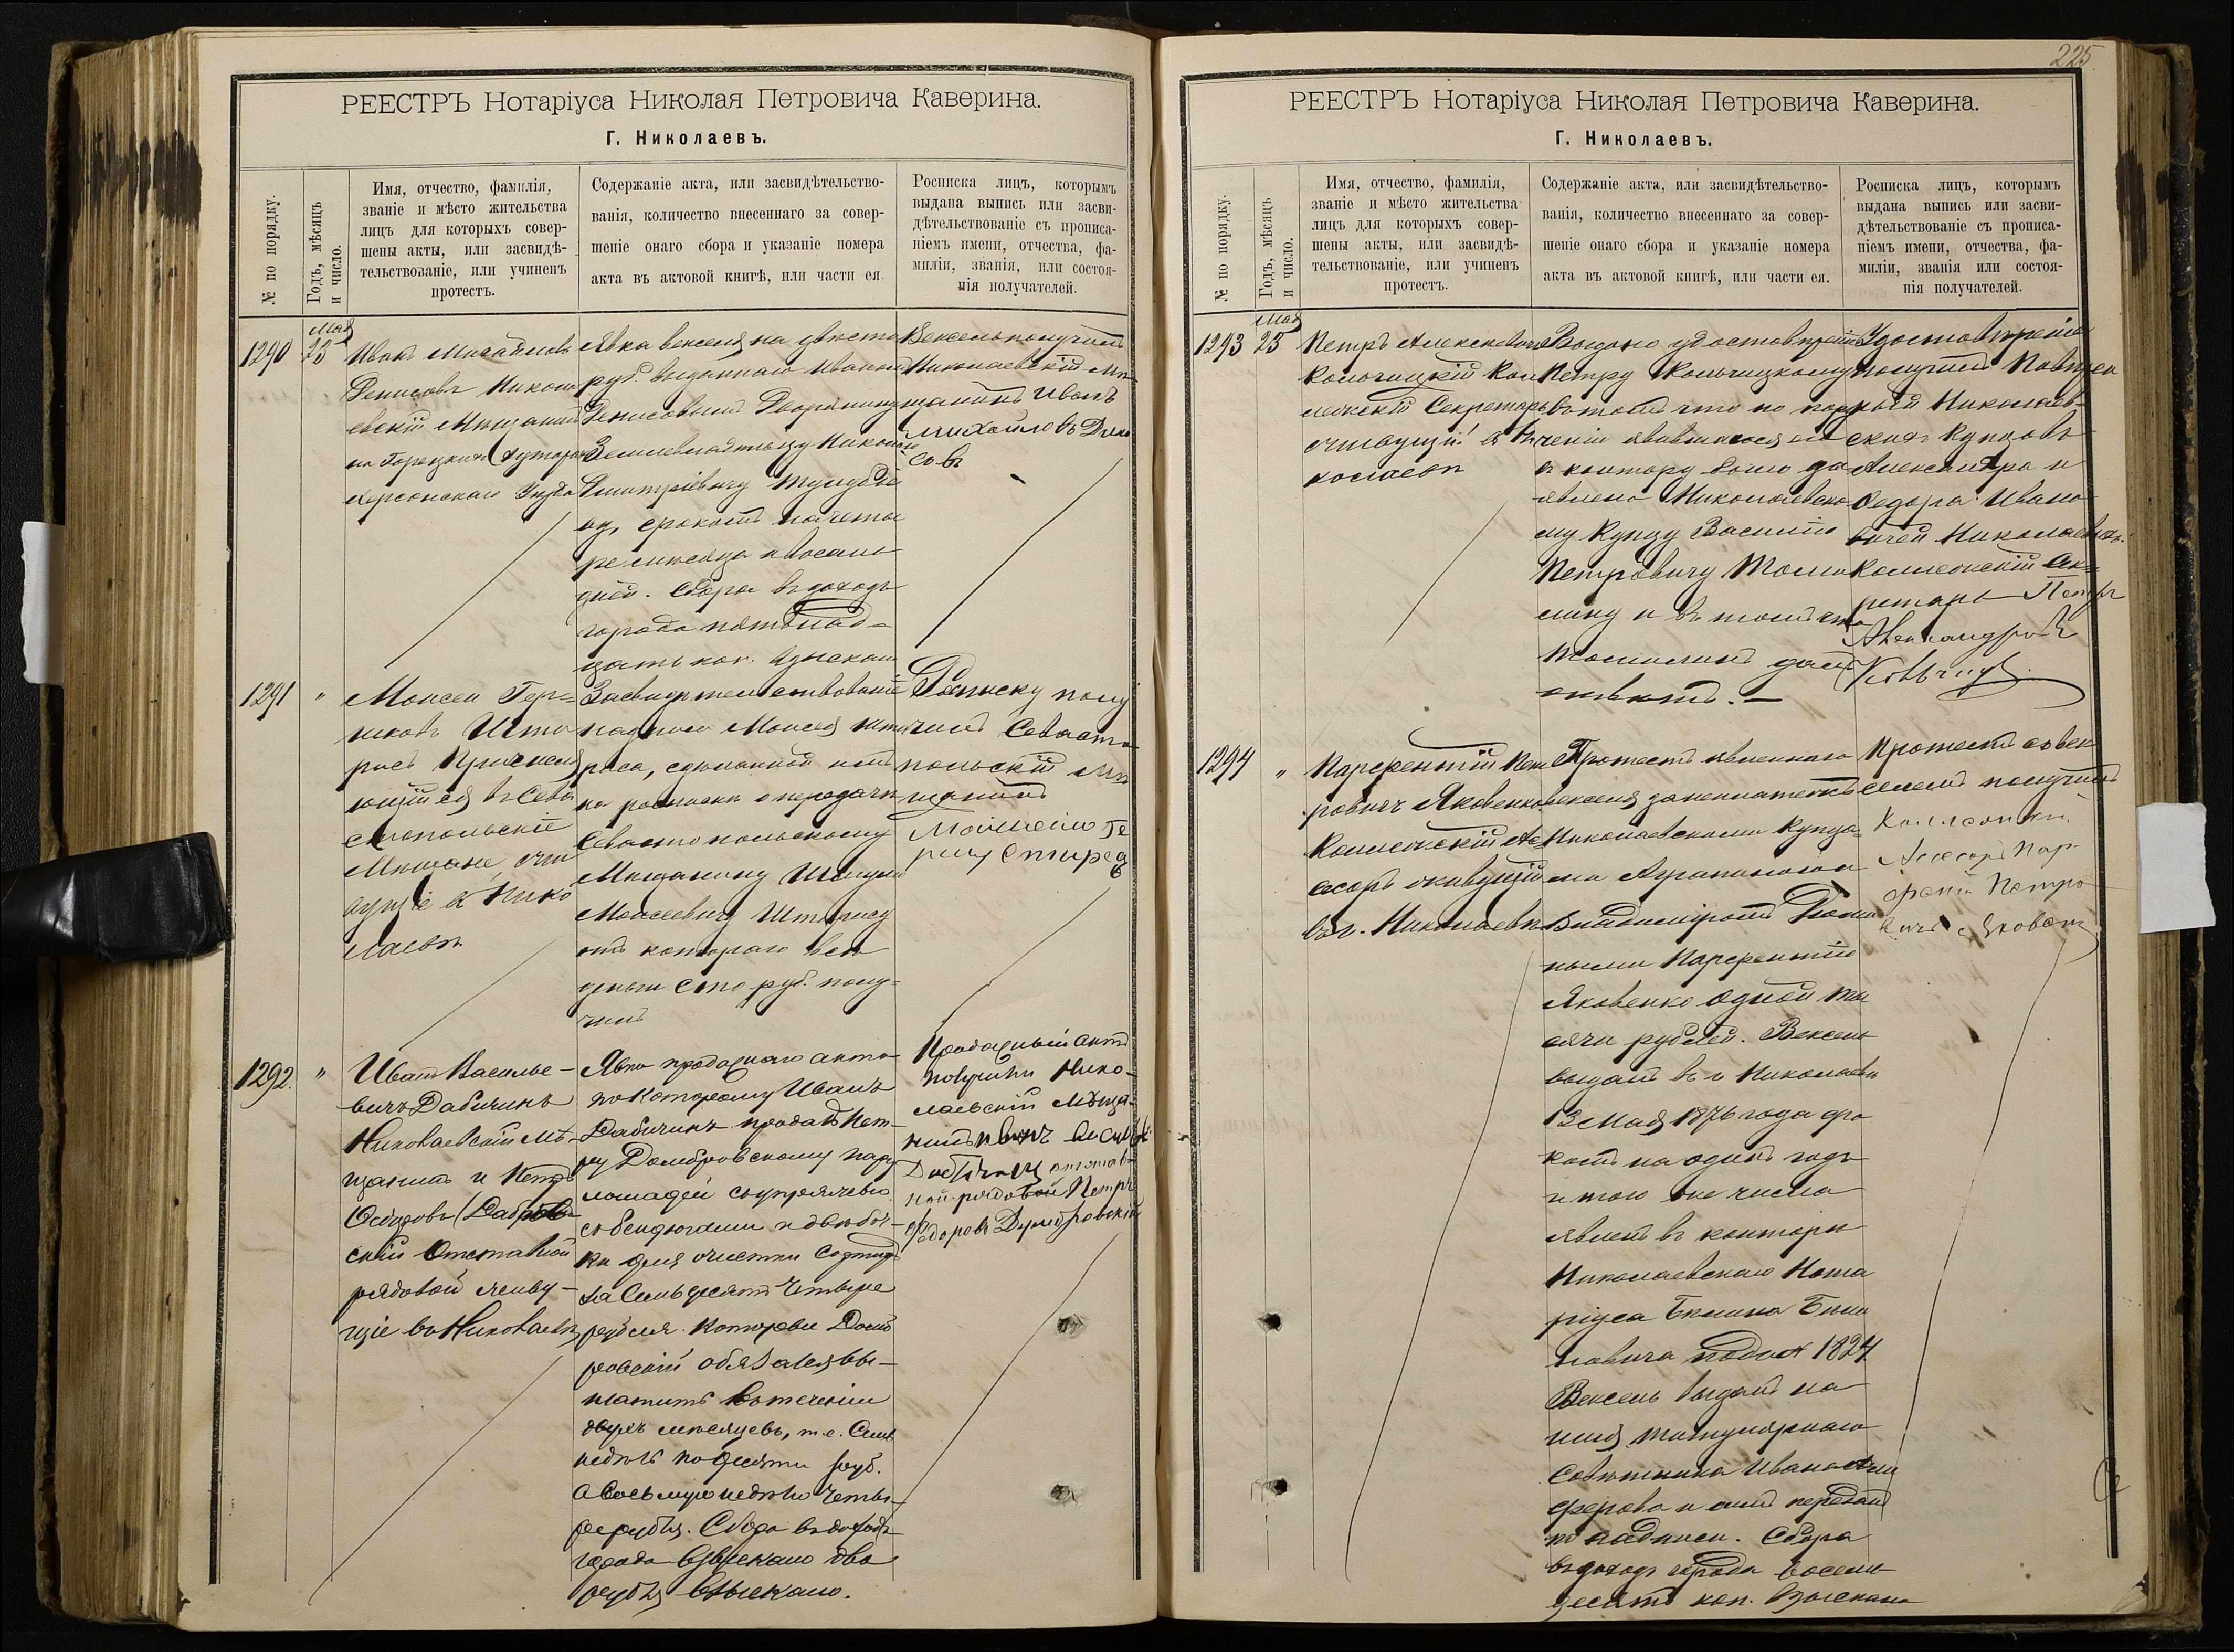 РЕЕСТРЪ Нотаріуса Николая Петровича Каверина.
Г. Николаевъ.
№ по порядку.
Годъ, мѣсяцъ
и число.
Имя, отчество, фамилія,
званіе и мѣсто жительства
лицъ для которыхъ совер-
шены акты, или засвидѣ-
тельствованіе, или учиненъ
протестъ.
Содержаніе акта, или засвидѣтельство-
ванія, количество внесеннаго за совер-
шеніе онаго сбора и указаніе номера
акта въ актовой книгѣ, или части ея.
Росписка лицъ, которымъ
выдана выпись или засви-
дѣтельствованіе съ прописа-
ніемъ имени, отчества, фа-
миліи, званія, или состоя-
нія получателей.
1290
Мая
23
Иванъ Михайловъ
Денисовъ Никола
евскій Мѣщанинъ
на Горецкихъ Хуторахъ
Херсонскаго Уѣзда
Явка векселя на двѣсти
руб. выданнаго Иваномъ
Денисовымъ Дворянину
Землевладѣльцу Николаю
Дмитріевичу
срокомъ на четы
ре мѣсяца и восемь
дней. Сбора въ доходъ
города пятнад-
цать коп. взыскано
Вексель получилъ
Николаевскій Мѣ-
щанинъ Иванъ
Михайловъ Дени
совъ
1291
"
Моисей Гер-
шковъ Штп
рисъ Причисля
ющійся въ Сева
стопольскіе
Мѣщане, жи
вущіе въ Нико
лаевѣ
Засвидѣтельствованіе
надписи Моисея
сдѣланной имъ
на роспискѣ о передачѣ
Севастопольскому
Мѣщанину
Моисеевичу
отъ котораго всѣ
деньги сто руб. полу-
чилъ
Росписку полу
чилъ Севасто
польскій Мѣ
щанинъ
1292.
"
Иванъ Василье-
вичъ Дабичинъ
Николаевскій мѣ-
щанинъ и Петръ
Ѳедоровъ
скій Отставной
рядовой живу-
щіе въ Николаевѣ
Явка продажнаго акта
по которому Иванъ
Дабичинъ продалъ Пет-
ру Домбровскому пару
лошадей съ упряжью
съ бендюгами и двѣ боч-
ки для очистки
за Семьдесятъ Четыре
рубля. которые Домб
ровскій обязался вы-
платить въ теченіи
двухъ мѣсяцевъ, т.е. Семь
недѣль по десяти руб.
а восьмую недѣлю Четы-
ре рубля. Сбора въ доходъ
города взыскано два
рубля взыскано.
Продажный актъ
получили Нико-
лаевскій мѣща-
нинъ Иванъ
отстав-
ной рядовой Петръ
Федоровъ Думбровскій
225.
РЕЕСТРЪ Нотаріуса Николая Петровича Каверина.
Г. Николаевъ.
№ по порядку.
Годъ, мѣсяцъ
и число.
Имя, отчество, фамилія,
званіе и мѣсто жительства
лицъ для которыхъ совер-
шены акты, или засвидѣ-
тельствованіе, или учиненъ
протестъ.
Содержаніе акта, или засвидѣтельство-
ванія, количество внесеннаго за совер-
шеніе онаго сбора и указаніе номера
акта въ актовой книгѣ, или части ея.
Росписка лицъ, которымъ
выдана выпись или засви-
дѣтельствованіе съ прописа-
ніемъ имени, отчества, фа-
миліи, званія или состоя-
нія получателей.
1293
Мая
23
Петръ
Кольчицкій Кол
лежскій Секретарь
живущій въ Ни
колаевѣ
Выдано удостовѣреніе
Петру Кольчицкому
въ томъ что по пору
ченію явившагося
въ контору было за
явлено Николаевско
му Купцу Василію
Петровичу Томи
лину и въ томъ что
Томилинъ далъ
отвѣтъ. –
Удостовѣреніе
получилъ Повѣрен
ный Николаев-
скихъ Купцовъ
Александра и
Ѳедора Ивано
вичей
Коллежскій Сек
ретарь Петръ
Александровъ
1294
"
Парфентій Пет
ровичъ Яковенко
Коллежскій Ас
сесоръ живущій
въ г. Николаевѣ
Протестъ явленнаго
векселя за неплатежъ
Николаевскими Купца
ми
Владиміромъ
ными Парфентію
Яковенко одной ты
сячи рублей. Вексель
выданъ въ г Николаевѣ
13 Мая 1876 года сро
комъ на одинъ годъ
и того же числа
явленъ въ конторѣ
Николаевскаго Нота
ріуса
новича подъ № 1824.
Вексель выданъ на
имя Титулярнаго
Совѣтника Ивана
и имъ переданъ
по надписи. Сбора
въ доходъ города восемь
десятъ коп. взыскано
Протестъ съ век
селемъ получилъ
Коллежскій
Ассесоръ Пар
фентій Петро
вичъ Яковенко